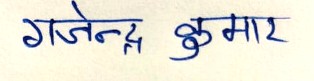 गजेन्द्र कुमार